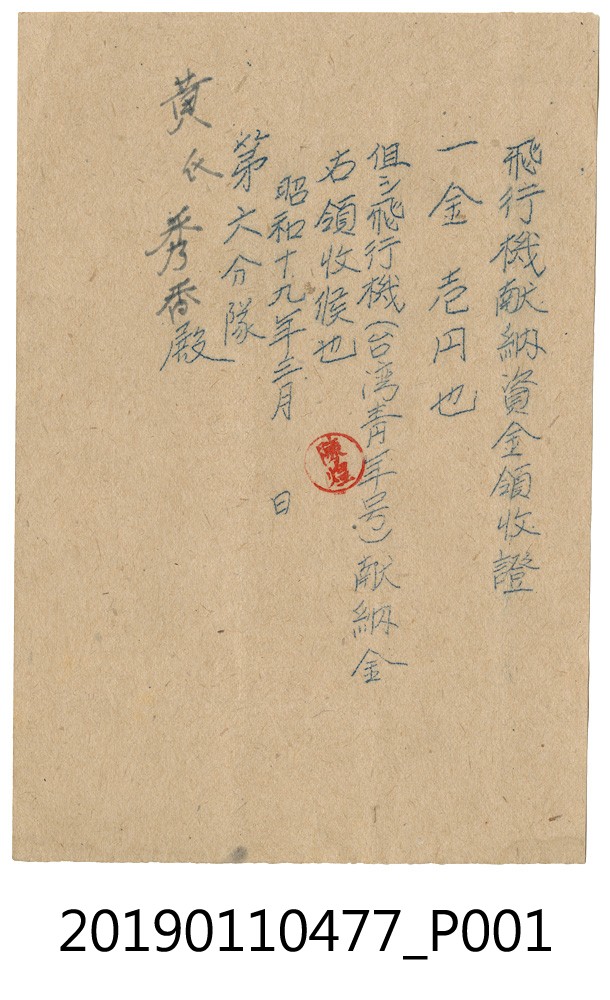 飛行機献納資金領收證
一金壱円也
但シ飛行機(台湾青年号)献納金
右領收候也
昭和十九年三月 日
陳煌
第六分隊
黄氏秀香殿
20190110477_P001